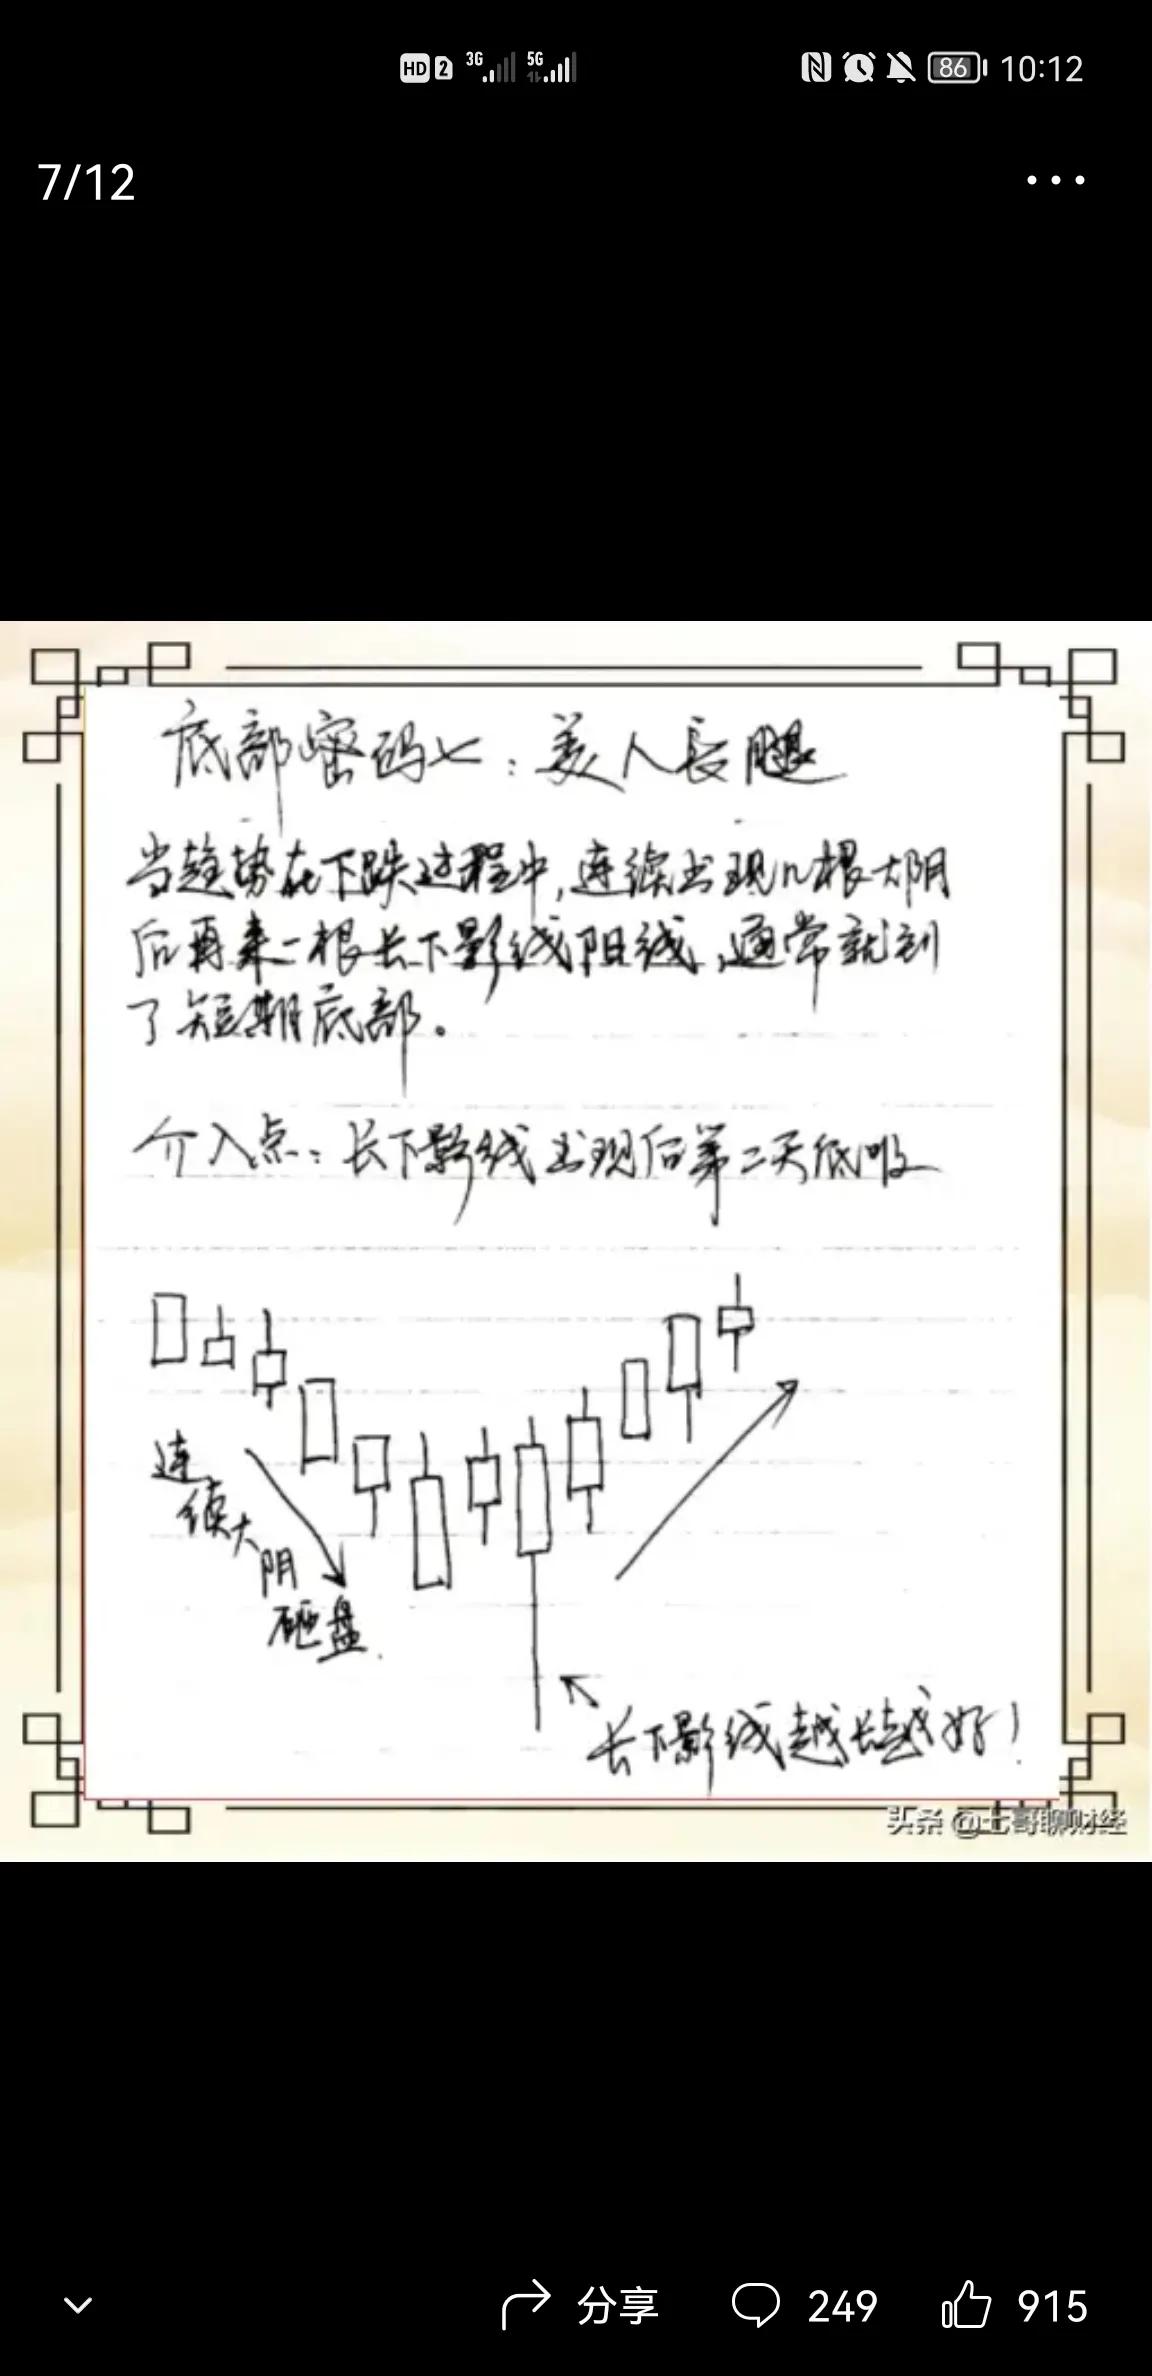 HD 2 3G 5G 86 10:12
7/12
底部密码七：美人長腿
当趋势在下跌过程中，连续出现几根大阴
后再来一根长下影线阳线，通常就到
了短期底部。
介入点：长下影线出现后第二天低吸
连续大阴砸盘
长下影线越长越好！
头条 @七哥聊财经
分享 249 915